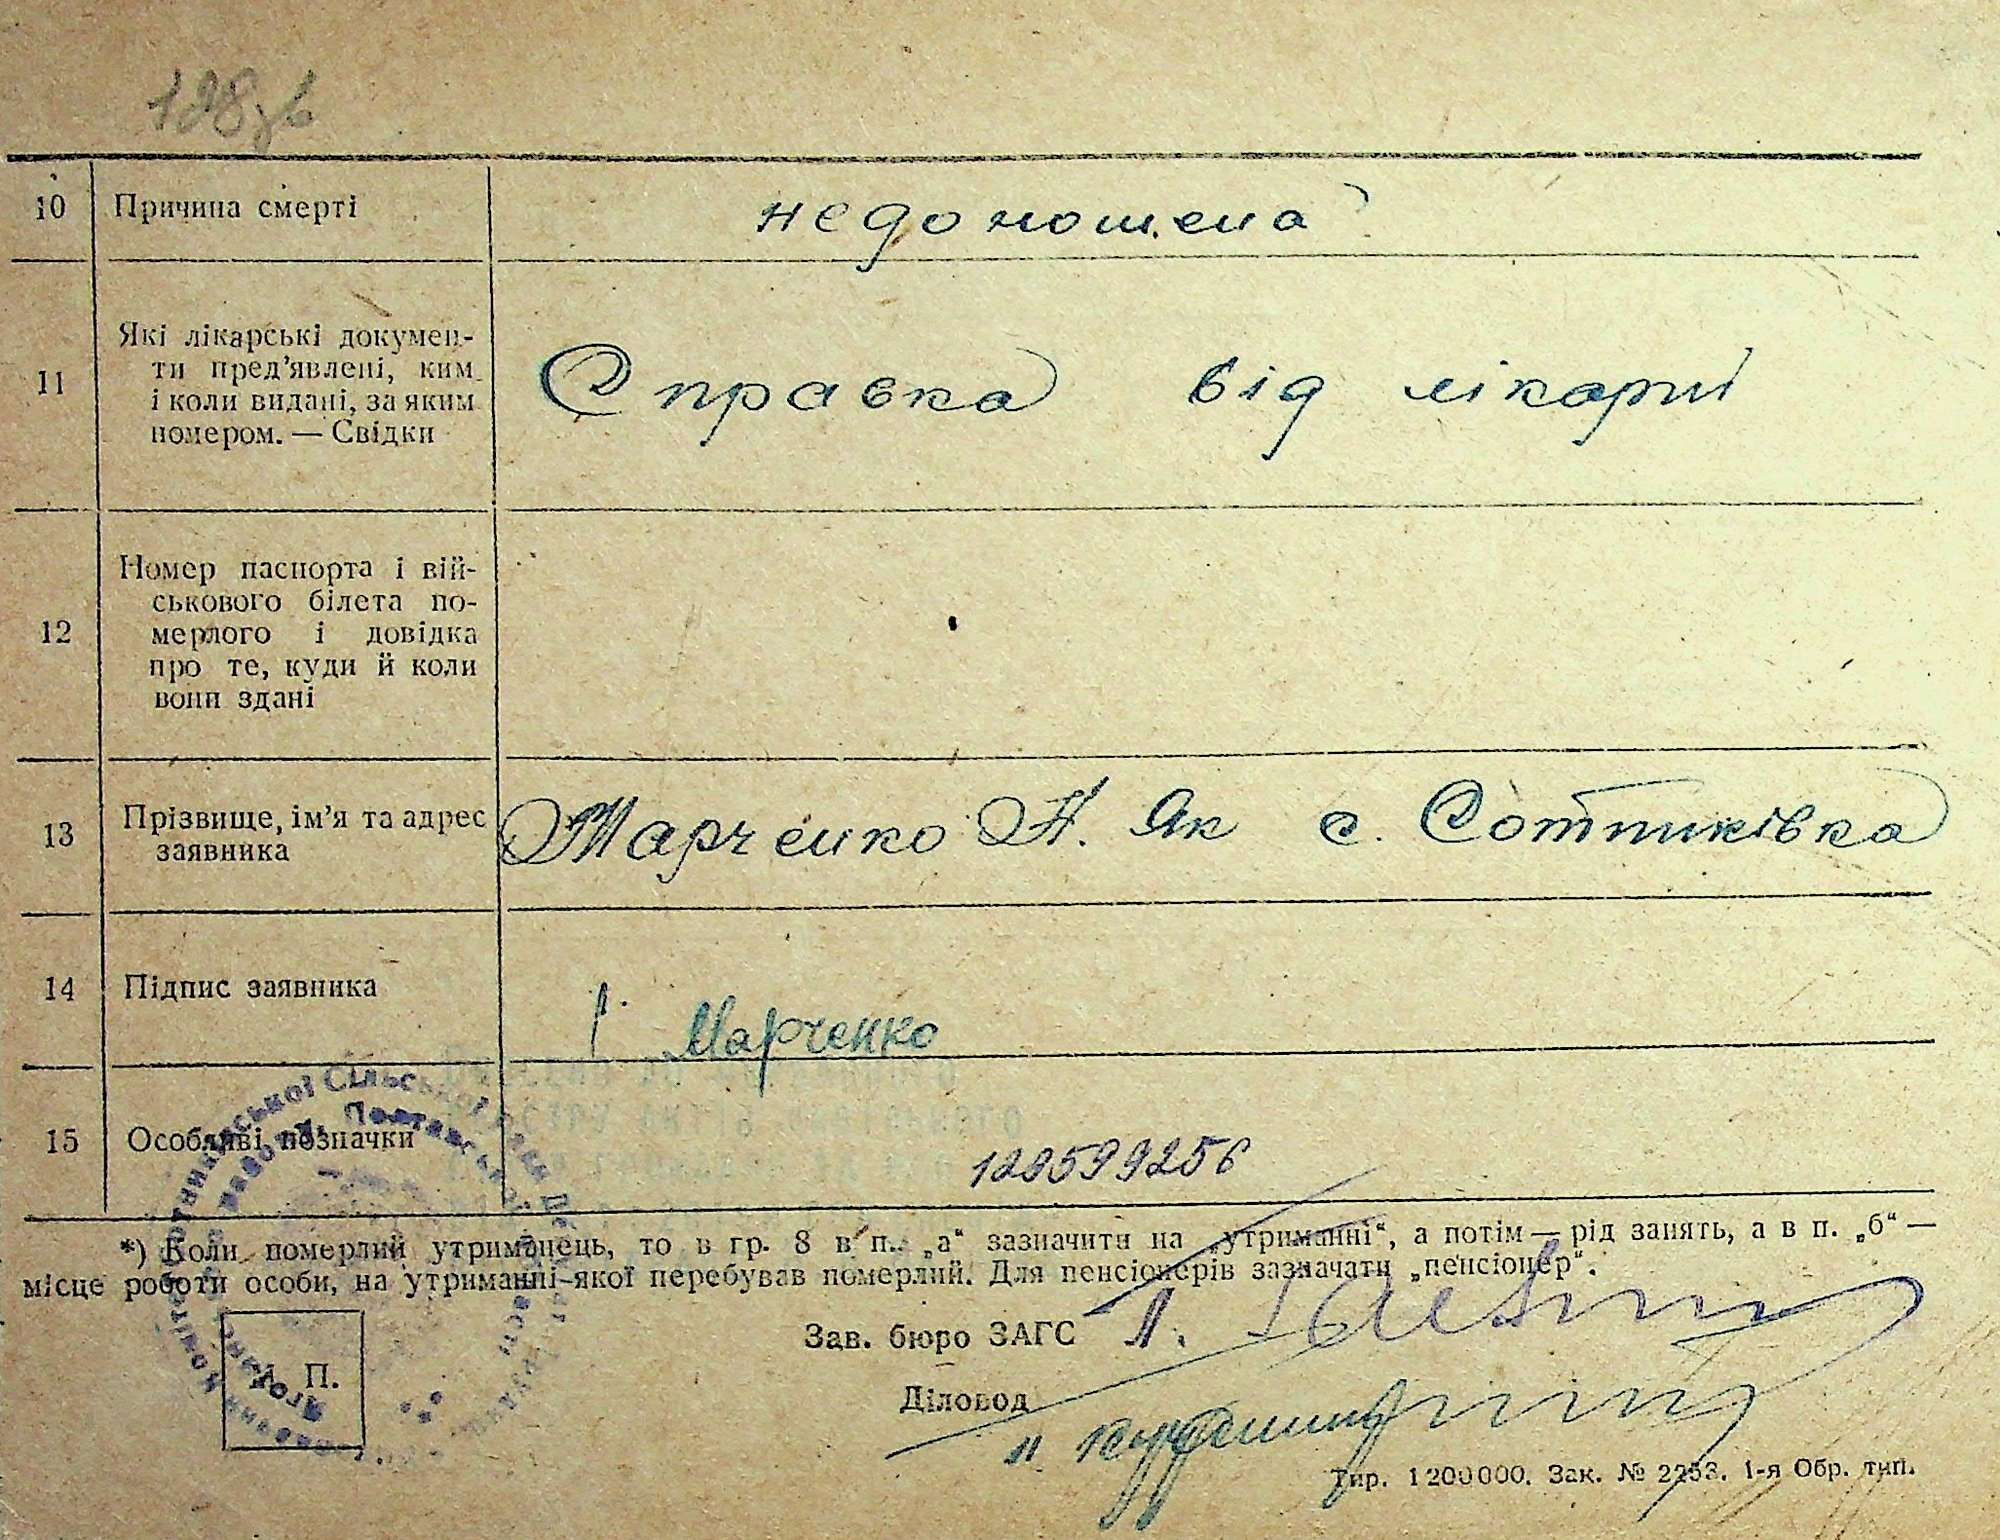 128зв
10 Причина смерті недоношена
11 Які лікарські докумен-
ти пред'явлені, ким
і коли видані, за яким
номером. — Свідки
Справка від лікарні
12 Номер паспорта і вій-
ськового білета по-
мерлого і довідка
про те, куди й коли
вони здані
13 Прізвище, ім'я та адрес
заявника
Марченко Н. Як с. Сотниківка
14 Підпис заявника
Марченко
15 Особливі позначки
129599256
*) Коли померлий утриманець, то в гр. 8 в п. „а“ зазначити на „утриманні“, а потім — рід занять, а в п. „б“ —
місце роботи особи, на утриманні якої перебував померлий. Для пенсіонерів зазначати „пенсіонер“.
Зав. бюро ЗАГС
М. П.
Діловод
Тир. 1200000. Зак. № 2253. 1-я Обр. тип.